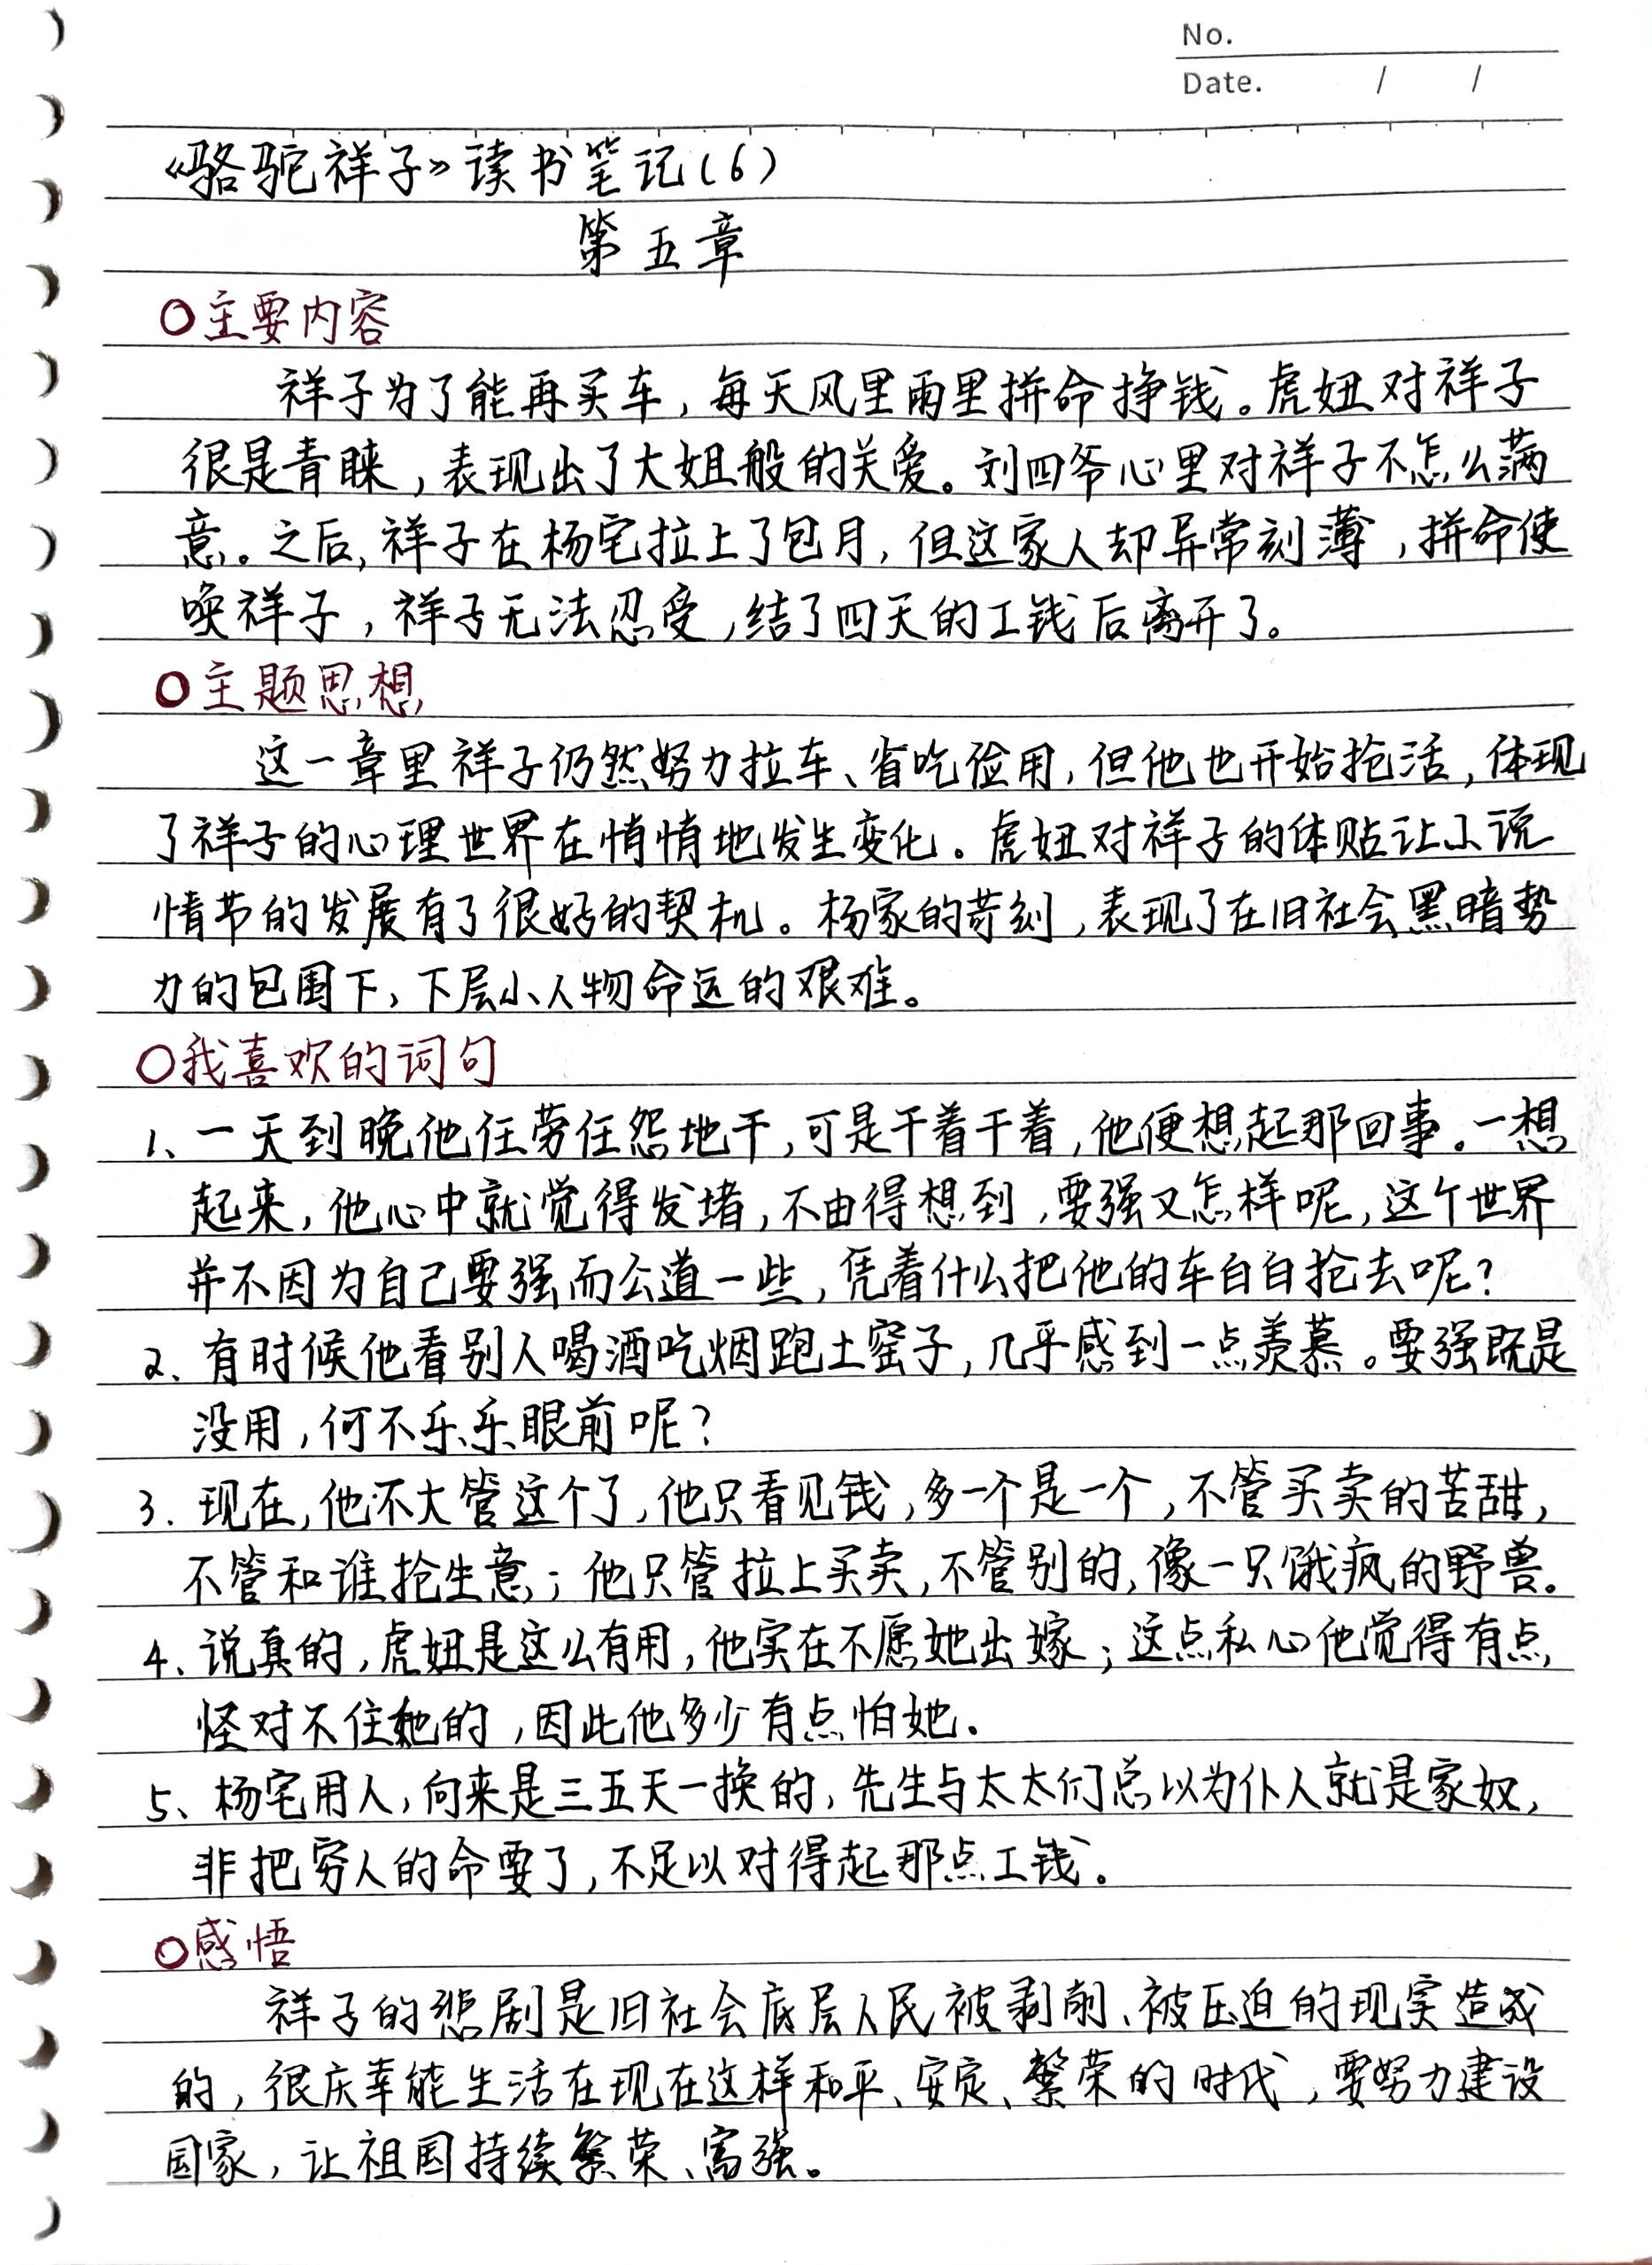 No.
Date. / /
《骆驼祥子》读书笔记(6)
第五章
○主要内容
祥子为了能再买车,每天风里雨里拼命挣钱。虎妞对祥子
很是青睐,表现出了大姐般的关爱。刘四爷心里对祥子不怎么满
意。之后,祥子在杨宅拉上了包月,但这家人却异常刻薄,拼命使
唤祥子,祥子无法忍受,结了四天的工钱后离开了。
○主题思想
这一章里祥子仍然努力拉车、省吃俭用,但他也开始抢活,体现
了祥子的心理世界在悄悄地发生变化。虎妞对祥子的体贴让小说
情节的发展有了很好的契机。杨家的苛刻,表现了在旧社会黑暗势
力的包围下,下层小人物命运的艰难。
○我喜欢的词句
1、一天到晚他任劳任怨地干,可是干着干着,他便想起那回事。一想
起来,他心中就觉得发堵,不由得想到,要强又怎样呢,这个世界
并不因为自己要强而公道一些,凭着什么把他的车白白抢去呢?
2、有时候他看别人喝酒吃烟跑土窑子,几乎感到一点羡慕。要强既是
没用,何不乐乐眼前呢?
3.现在,他不大管这个了,他只看见钱,多一个是一个,不管买卖的苦甜,
不管和谁抢生意;他只管拉上买卖,不管别的,像一只饿疯的野兽。
4、说真的,虎妞是这么有用,他实在不愿她出嫁;这点私心他觉得有点
怪对不住她的,因此他多少有点怕她.
5、杨宅用人,向来是三五天一换的,先生与太太们总以为仆人就是家奴,
非把穷人的命要了,不足以对得起那点工钱。
○感悟
祥子的悲剧是旧社会底层人民被剥削、被压迫的现实造成
的,很庆幸能生活在现在这样和平、安定、繁荣的时代,要努力建设
国家,让祖国持续繁荣、富强。